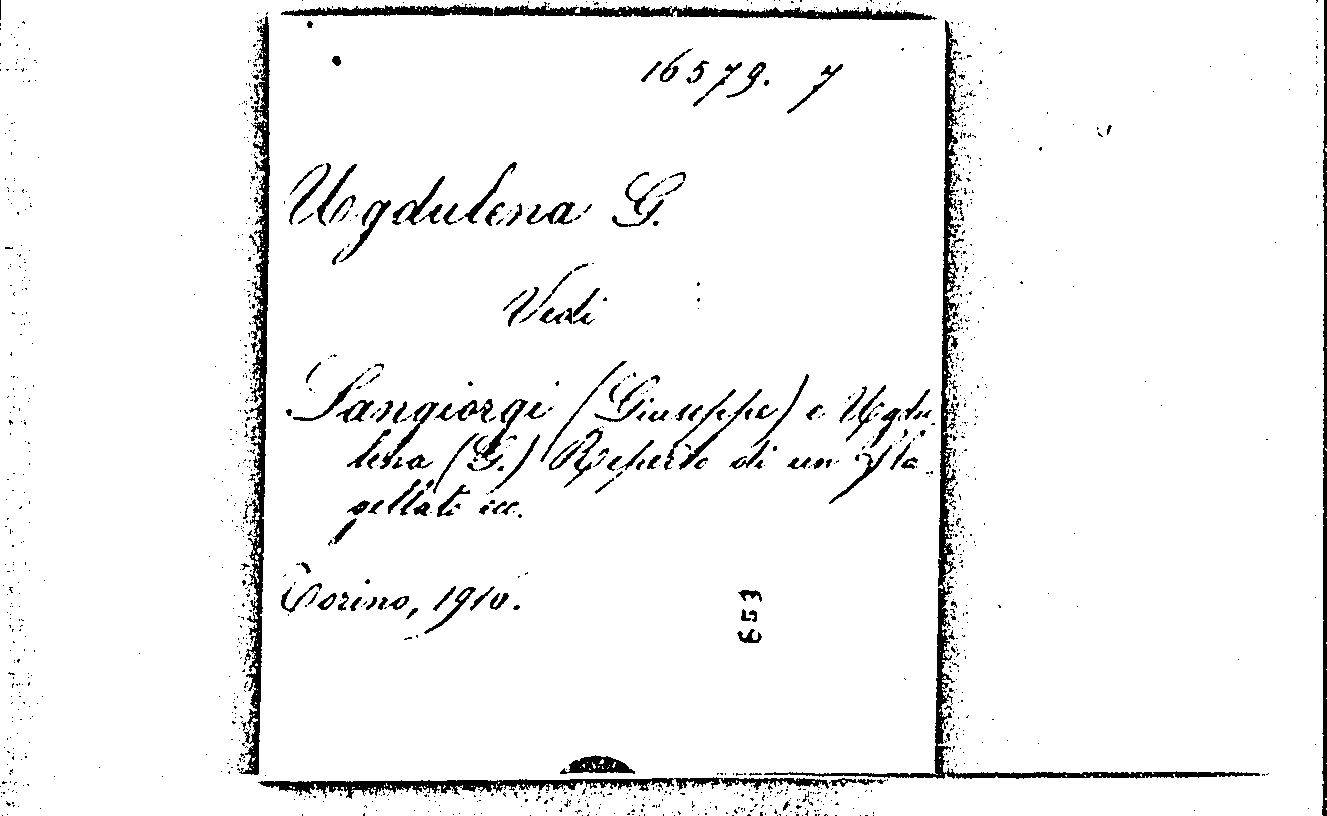 16579. 7
Ugdulena G.
Vedi
Sangiorgi (Giuseppe) e Ugdu
lena (G.) Reperto di un fla-
gellato ecc.
Torino, 1910.
653